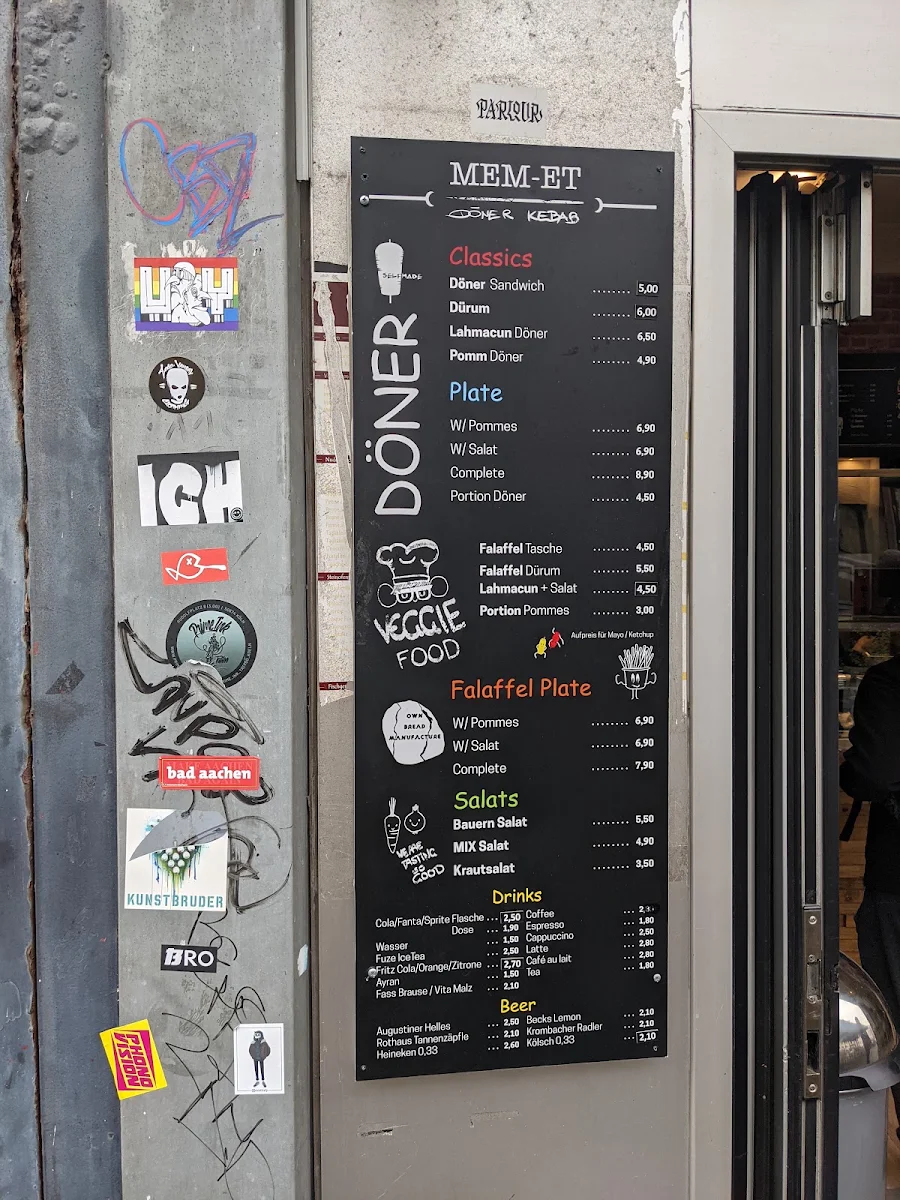 PARQUR
MEM-ET
DÖNER KEBAB
SELFMADE
DÖNER
Classics
Döner Sandwich ........ 5,00
Dürum 6,00
Lahmacun Döner ........ 6,50
Pomm Döner ........ 4,90
Plate
W/ Pommes ........ 6,90
W/ Salat ........ 6,90
Complete ........ 8,90
Portion Döner ........ 4,50
VEGGIE
FOOD
Falaffel Tasche ........ 4,50
Falaffel Dürum ........ 5,50
Lahmacun + Salat ........ 4,50
Portion Pommes ........ 3,00
Aufpreis für Mayo / Ketchup
Falaffel Plate
OWN
BREAD
MANUFACTURE
W/ Pommes ........ 6,90
W/ Salat ........ 6,90
Complete ........ 7,90
Salats
Bauern Salat ........ 5,50
MIX Salat ........ 4,90
Krautsalat ........ 3,50
WE ARE
TASTING
SO
GOOD
Drinks
Cola/Fanta/Sprite Flasche ... 2,50
Dose ... 1,90
Wasser ... 1,50
Fuze IceTea ... 2,50
Fritz Cola/Orange/Zitrone ... 2,70
Ayran ... 1,50
Fass Brause / Vita Malz ... 2,10
Coffee
Espresso ... 1,80
Cappuccino ... 2,50
Latte ... 2,80
Café au lait ... 2,80
Tea ... 1,80
Beer
Augustiner Helles ... 2,50
Rothaus Tannenzäpfle ... 2,10
Heineken 0,33 ... 2,60
Becks Lemon ... 2,10
Krombacher Radler ... 2,10
Kölsch 0,33 ... 2,10
ICH
Prime Ink
bad aachen
KUNSTBRUDER
BRO
PHONO
VISION